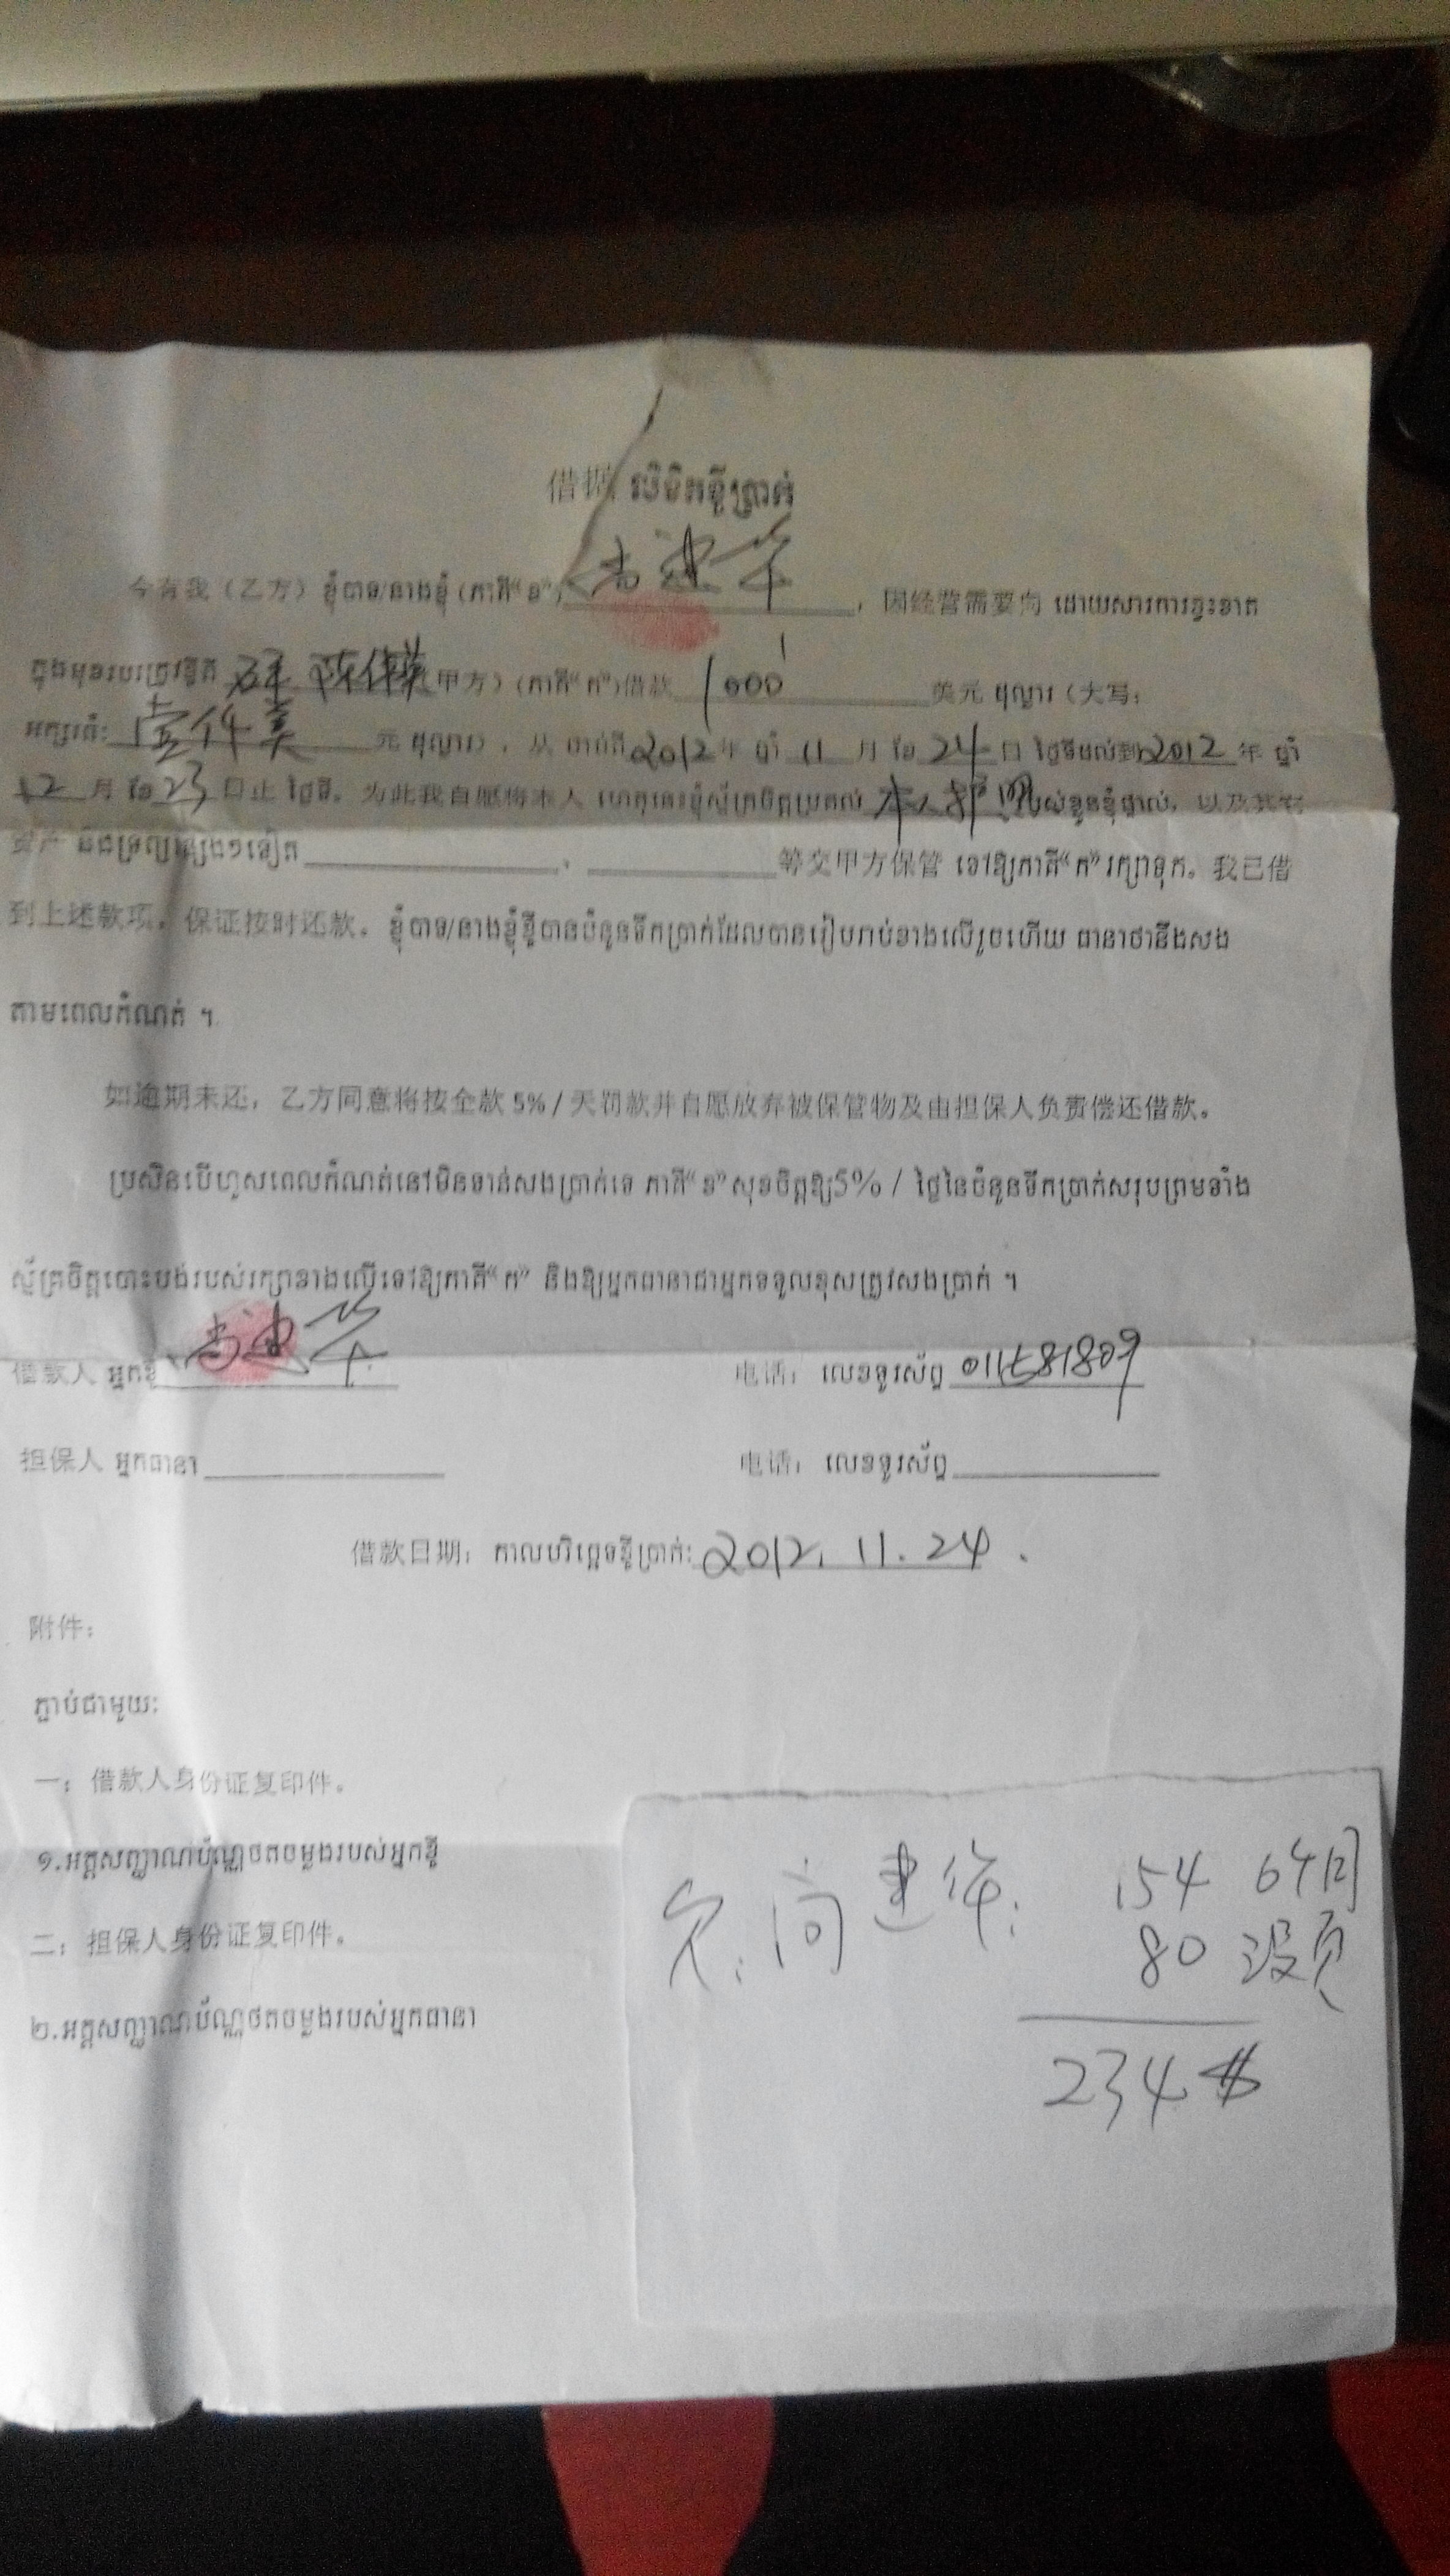 借据 លិខិតខ្ចីប្រាក់
今有我（乙方）ខ្ញុំបាទ/នាងខ្ញុំ (ភាគី“ខ”) 尚建华 ，因经营需要向 ដោយសារការខ្វះខាត
ក្នុងមុខរបរត្រូវខ្ចីពី （甲方）(ភាគី“ក”) 借款 1000 美元 ដុល្លារ（大写：
អក្សរធំ: 壹仟美 元 ដុល្លារ）, 从 ចាប់ពី 2012 年 ឆ្នាំ 11 月 ខែ 24 日 ថ្ងៃទីដល់ទី 2012 年 ឆ្នាំ
12 月 ខែ 23 日止 ថ្ងៃទី. 为此我自愿将本人 ហេតុនេះខ្ញុំស្ម័គ្រចិត្តប្រគល់ 本人 របស់ខ្លួនខ្ញុំផ្ទាល់, 以及其它
资产 និងទ្រព្យផ្សេងៗទៀត , 等交甲方保管 ទៅឱ្យភាគី“ក” រក្សាទុក. 我已借
到上述款项，保证按时还款。ខ្ញុំបាទ/នាងខ្ញុំខ្ចីបានចំនួនទឹកប្រាក់ដែលបានរៀបរាប់ខាងលើរួចហើយ ធានាថានឹងសង
តាមពេលកំណត់ ។
如逾期未还，乙方同意将按全款 5% / 天罚款并自愿放弃被保管物及由担保人负责偿还借款。
ប្រសិនបើហួសពេលកំណត់នៅមិនទាន់សងប្រាក់ទេ ភាគី“ខ” សុខចិត្តឱ្យ5% / ថ្ងៃនៃចំនួនទឹកប្រាក់សរុបព្រមទាំង
ស្ម័គ្រចិត្តបោះបង់របស់រក្សាខាងលើទៅឱ្យភាគី“ក” និងឱ្យអ្នកធានាជាអ្នកទទួលខុសត្រូវសងប្រាក់ ។
借款人 អ្នកខ្ចី 尚建华 电话： លេខទូរស័ព្ទ
担保人 អ្នកធានា 电话： លេខទូរស័ព្ទ
借款日期： កាលបរិច្ឆេទខ្ចីប្រាក់: 2012. 11. 24 .
附件：
ភ្ជាប់ជាមួយ:
一：借款人身份证复印件。
១.អត្តសញ្ញាណប័ណ្ណថតចម្លងរបស់អ្នកខ្ចី
二：担保人身份证复印件。
២.អត្តសញ្ញាណប័ណ្ណថតចម្លងរបស់អ្នកធានា
欠：尚建华： 154
80
234 $